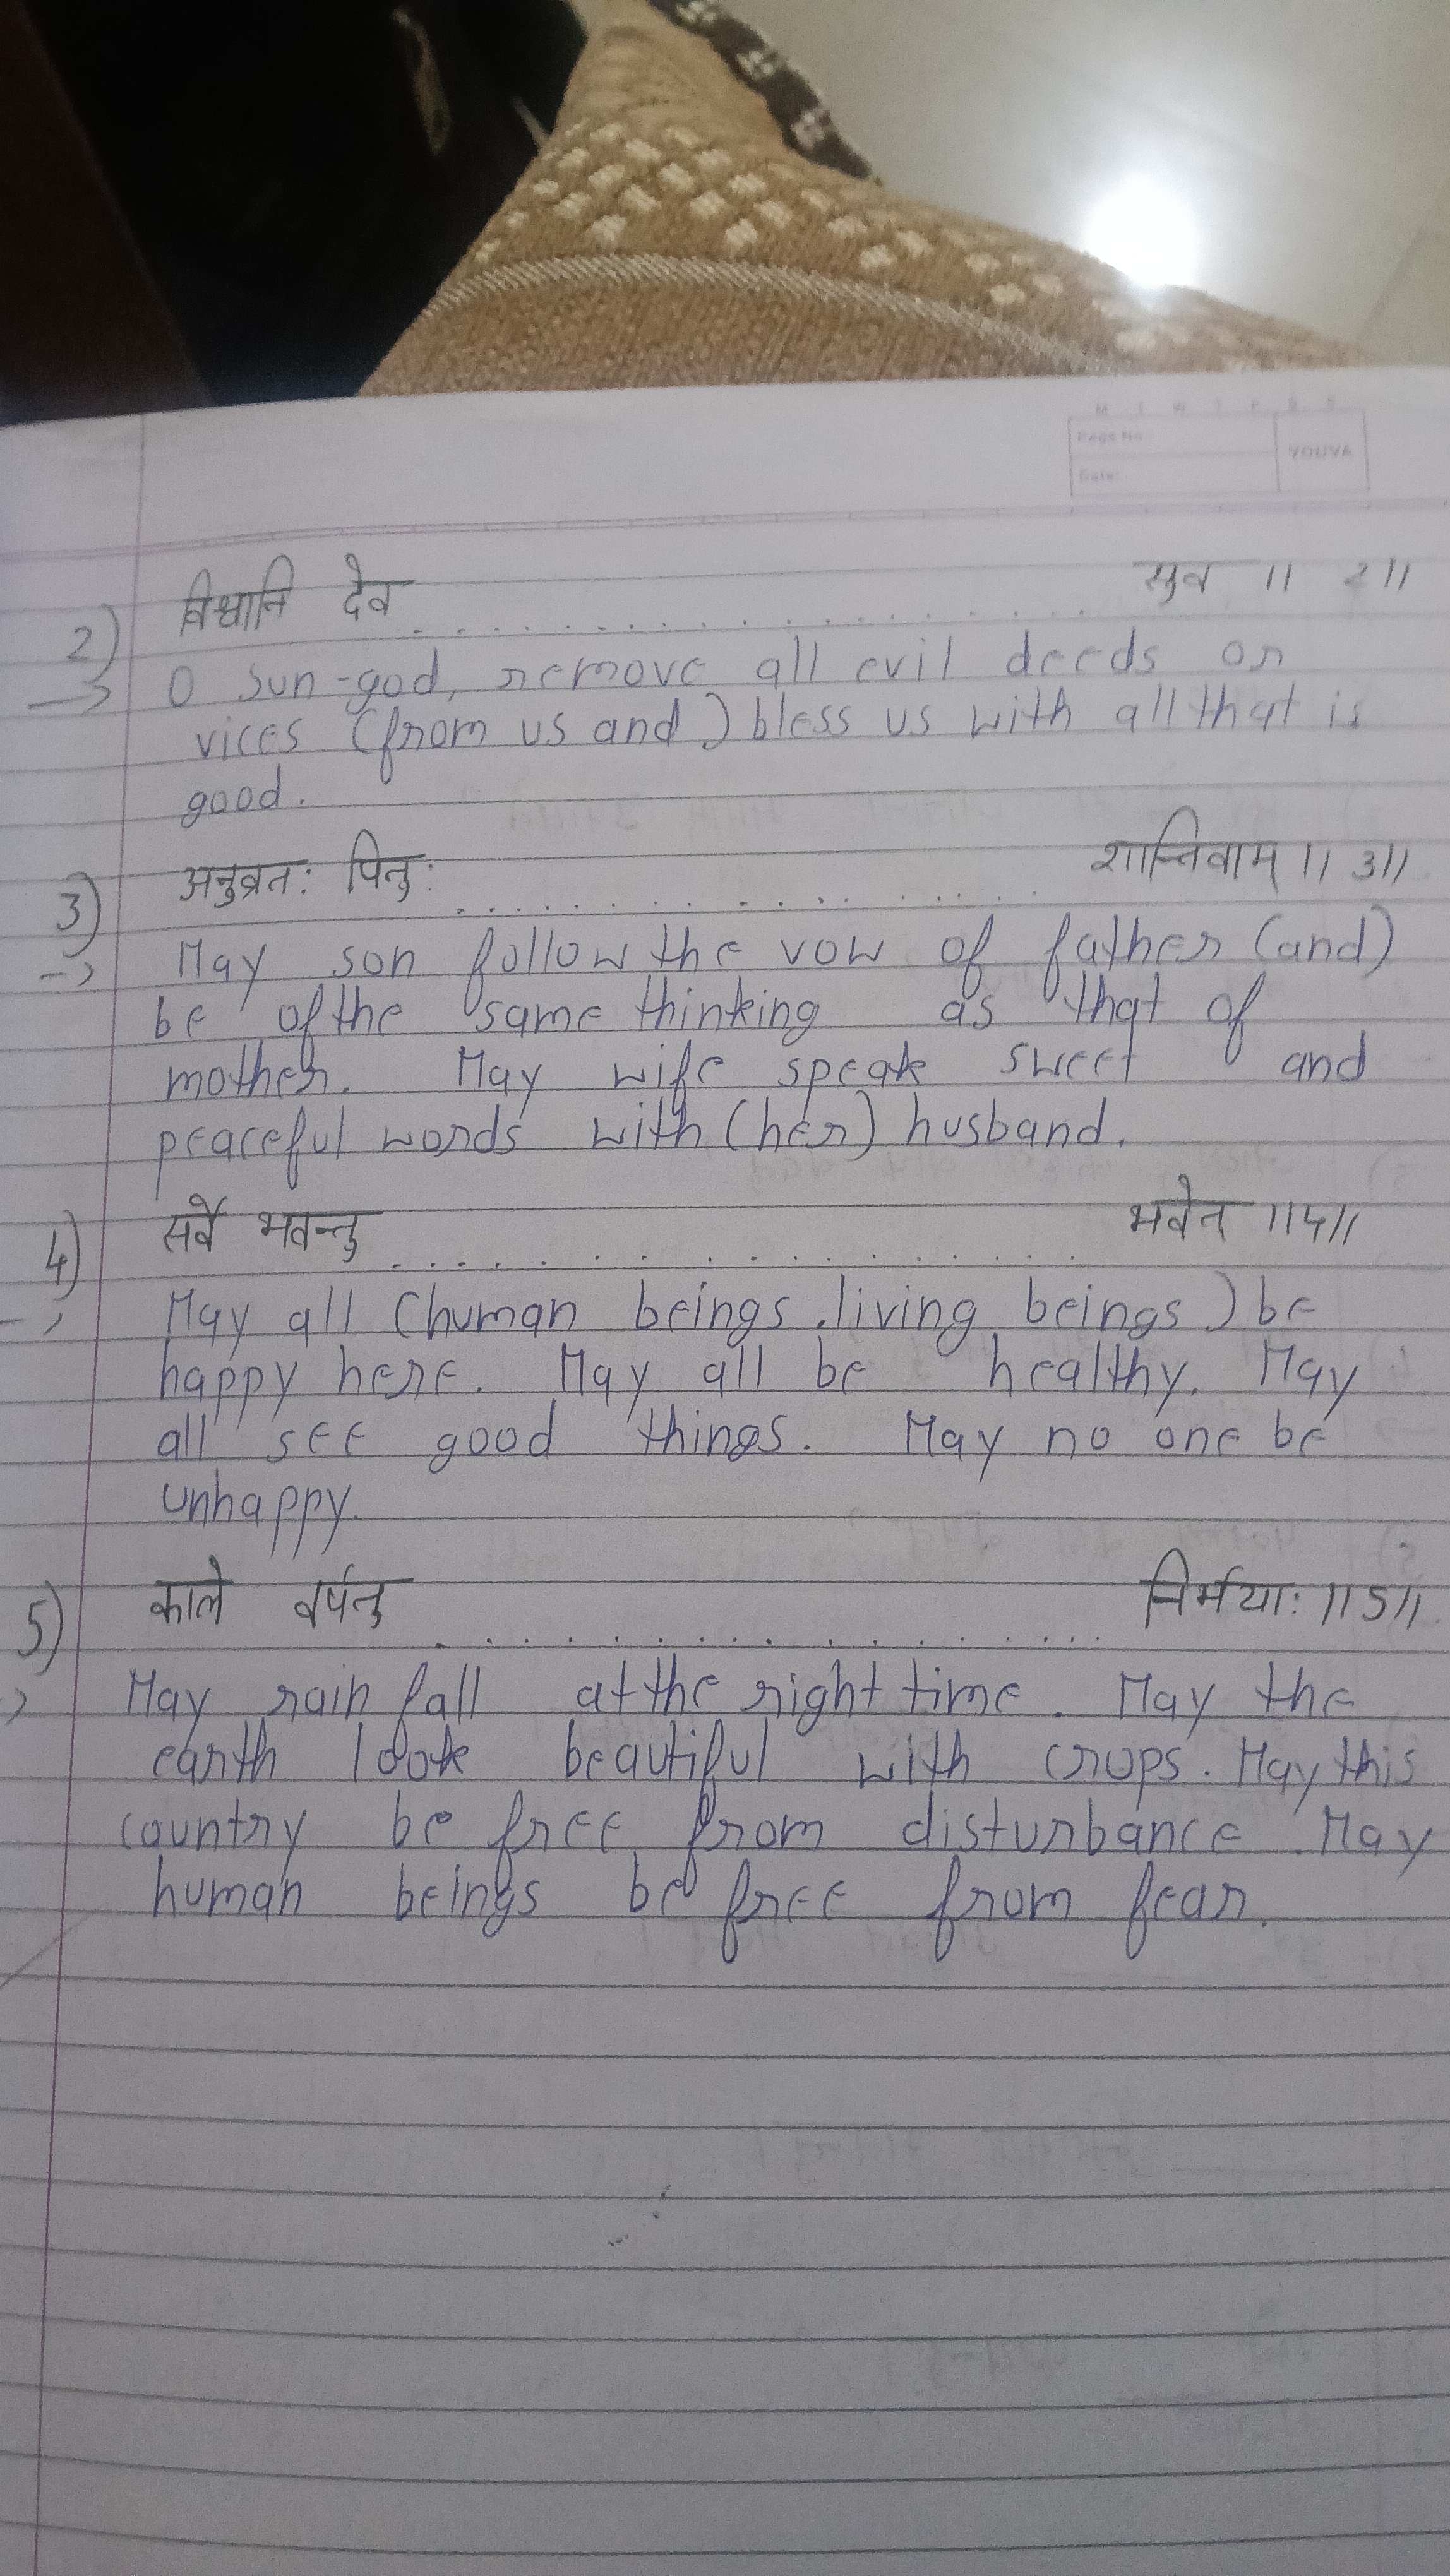 M T W T F S S
Page No.:
YOUVA
Date:
2) विश्वानि देव .................... सुव ।। २ ।।
→ O sun-god, remove all evil deeds or
vices (from us and) bless us with all that is
good.
3) अनुव्रतः पितुः .................... शान्तिवाम् ।। 3 ।।
→ May son follow the vow of father (and)
be of the same thinking as that of
mother. May wife speak sweet and
peaceful words with (her) husband.
4) सर्वे भवन्तु .................... भवेत् ।। 4 ।।
→ May all (human beings, living beings) be
happy here. May all be healthy. May
all see good things. May no one be
unhappy.
5) काले वर्षतु .................... निर्भयाः ।। 5 ।।
→ May rain fall at the right time. May the
earth look beautiful with crops. May this
country be free from disturbance. May
human beings be free from fear.